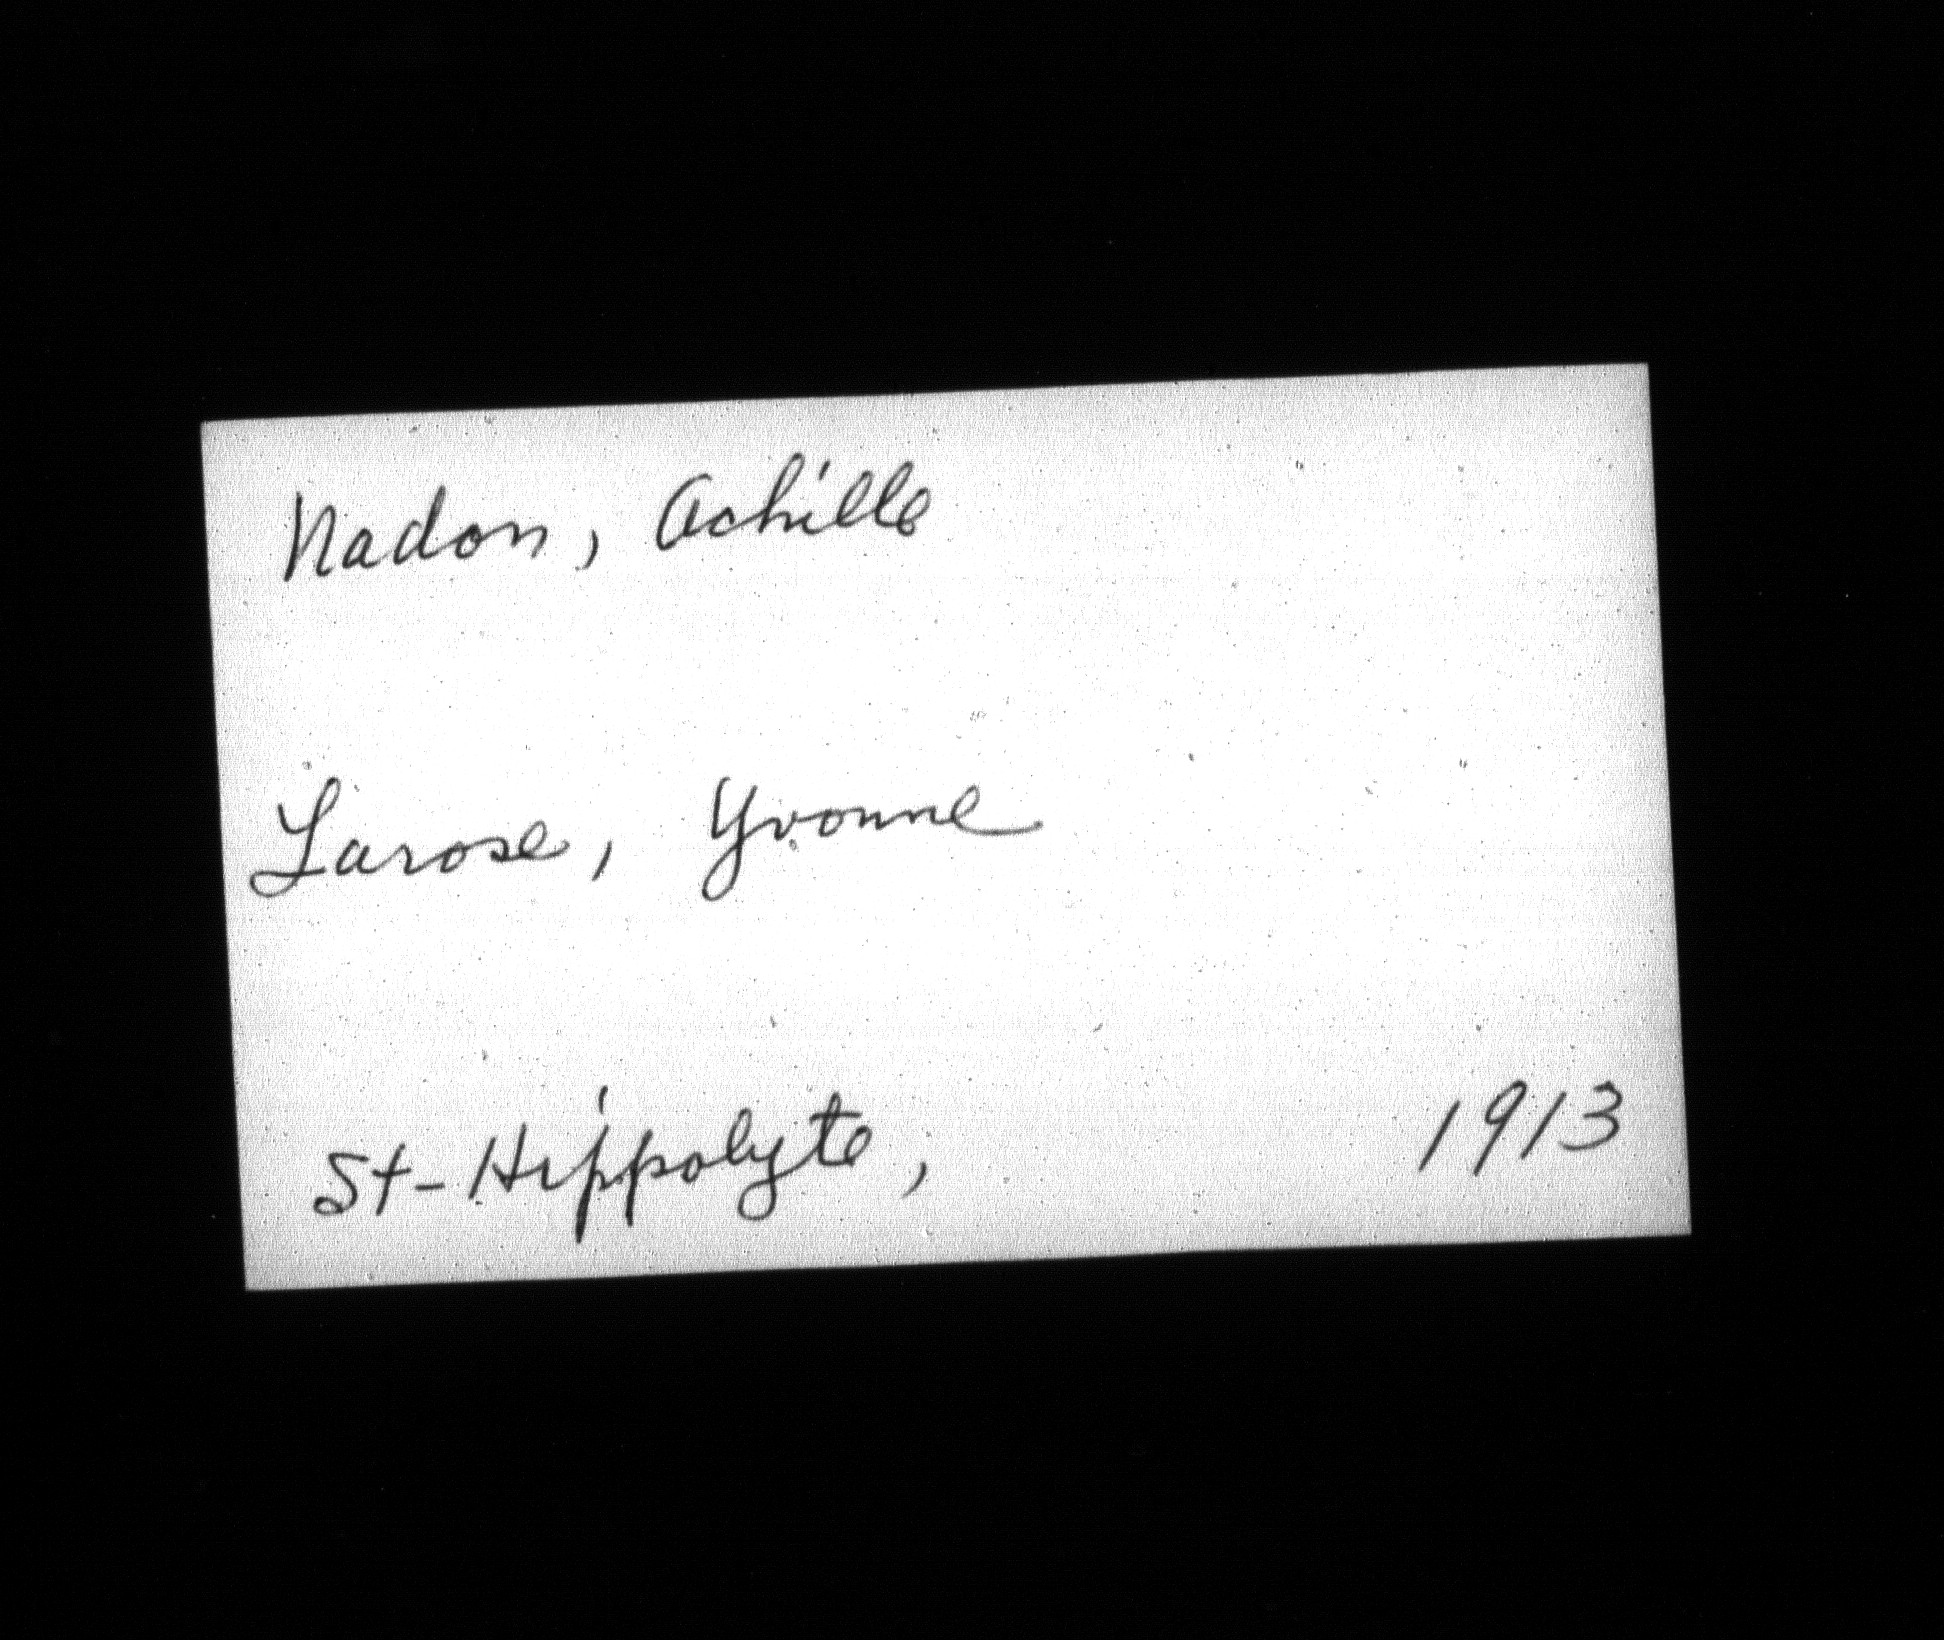 Nadon, Achille
Larose, Yvonne
St-Hippolyte, 1913